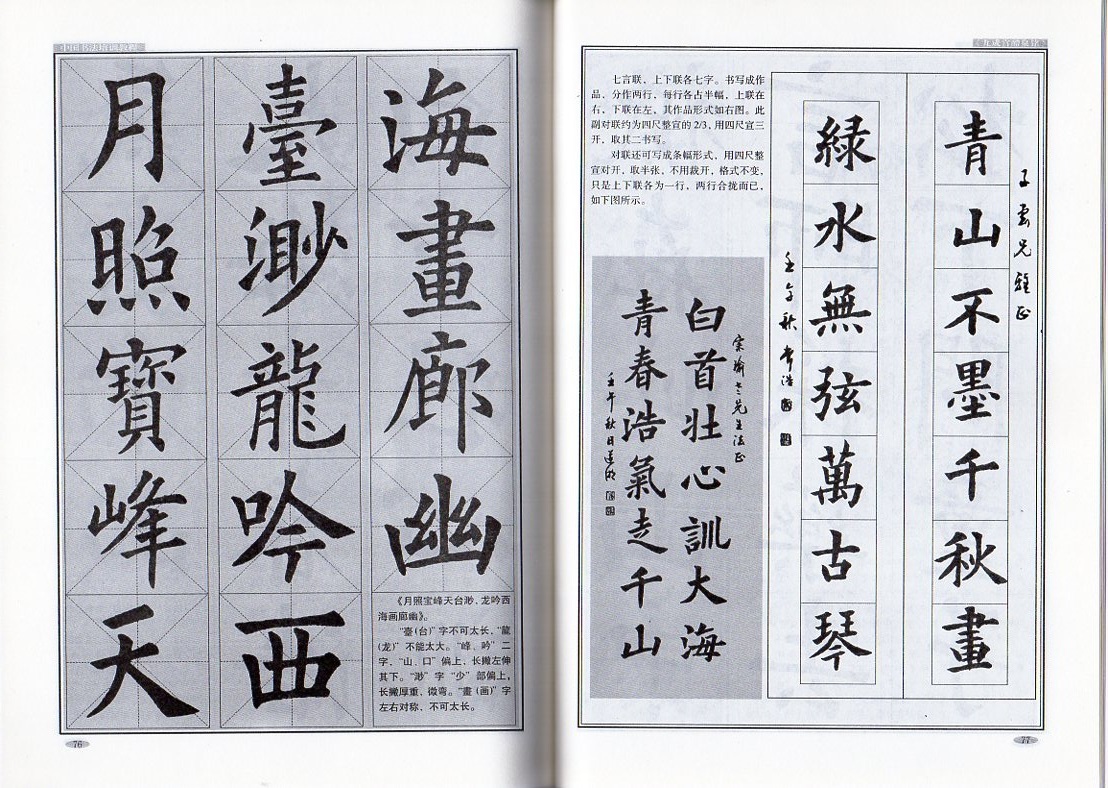 中国书法培训教程
月照寶峰天
臺渺龍吟西
海畫廊幽
《月照宝峰天台渺，龙吟西
海画廊幽》。
“臺(台)”字不可太长，“龍
(龙)”不能太大。“峰、吟”二
字，“山、口”偏上，长撇左伸
其下。“渺”字“少”部偏上，
长撇厚重、微弯。“畫(画)”字
左右对称，不可太长。
76
《九成宫醴泉铭》
七言联，上下联各七字。书写成作
品，分作两行，每行各占半幅，上联在
右，下联在左，其作品形式如右图。此
副对联约为四尺整宣的2/3，用四尺宣三
开，取其二书写。
对联还可写成条幅形式，用四尺整
宣对开，取半张，不用裁开，格式不变，
只是上下联各为一行，两行合拢而已，
如下图所示。
子雲兄雅正
青山不墨千秋畫
緑水無弦萬古琴
壬午秋
先生法正
白首壯心訓大海
青春浩氣走千山
壬午秋日
77